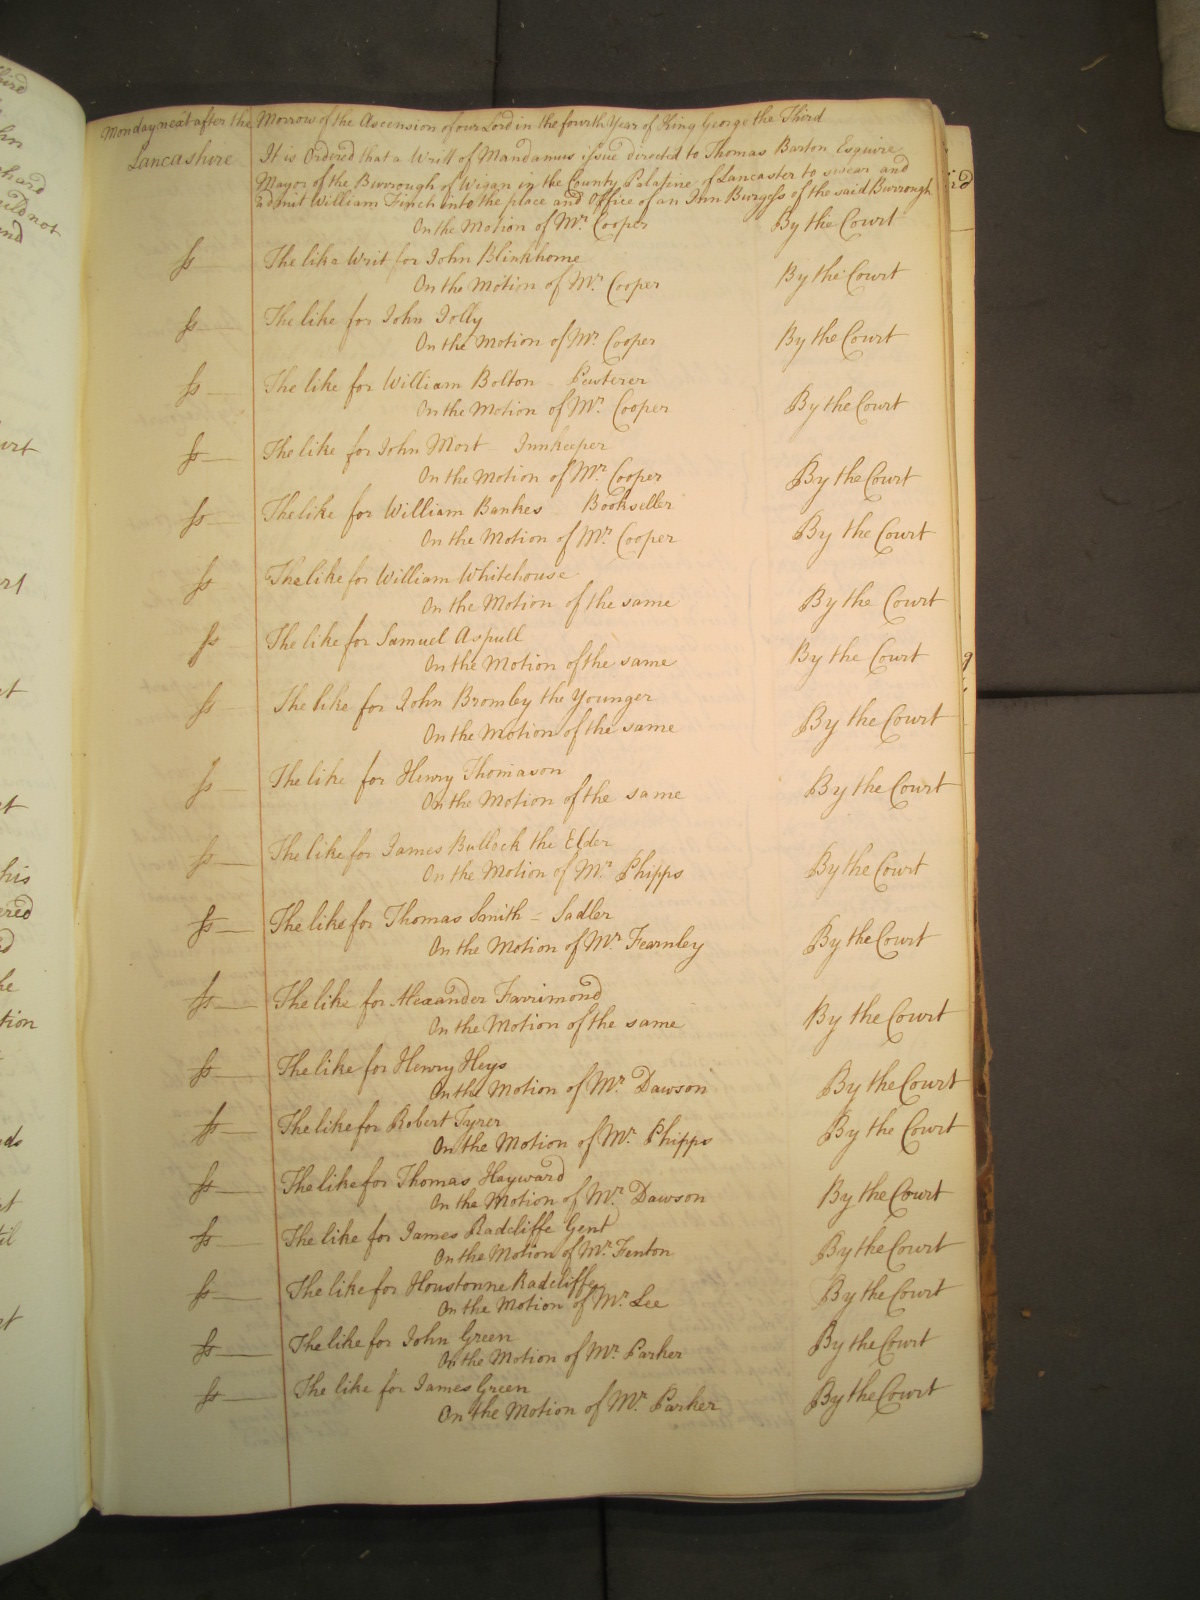 Monday next after the Morrow of the Ascension of our Lord in the fourth Year of King George the Third
Lancashire It is Ordered that a Writt of Mandamus issue directed to Thomas Barton Esquire
Mayor of the Burrough of Wigan in the County Palatine of Lancaster to swear and
admit William Finch into the place and Office of an Inn Burgess of the said Burrough
On the Motion of Mr. Cooper By the Court
ss The like Writ for John Blinkhorne
On the Motion of Mr. Cooper By the Court
ss The like for John Jolly
On the Motion of Mr. Cooper By the Court
ss The like for William Bolton Pewterer
On the Motion of Mr. Cooper By the Court
ss The like for John Mort Innkeeper
On the Motion of Mr. Cooper By the Court
ss The like for William Bankes Bookseller
On the Motion of Mr. Cooper By the Court
ss The like for William Whitehouse
On the Motion of the same By the Court
ss The like for Samuel Aspull
On the Motion of the same By the Court
ss The like for John Bromley the Younger
On the Motion of the same By the Court
ss The like for Henry Thomason
On the Motion of the same By the Court
ss The like for James Bullock the Elder
On the Motion of Mr. Phipps By the Court
ss The like for Thomas Smith - Sadler
On the Motion of Mr. Fearnley By the Court
ss The like for Alexander Farrimond
On the Motion of the same By the Court
ss The like for Henry Heys
On the Motion of Mr. Dawson By the Court
ss The like for Robert Tyrer
On the Motion of Mr. Phipps By the Court
ss The like for Thomas Hayward
On the Motion of Mr. Dawson By the Court
ss The like for James Radcliffe Gent
On the Motion of Mr. Fenton By the Court
ss The like for Houstonne Radcliffe
On the Motion of Mr. Lee By the Court
ss The like for John Green
On the Motion of Mr. Parker By the Court
ss The like for James Green
On the Motion of Mr. Parker By the Court